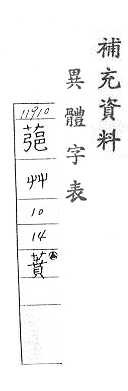 補充資料
異體字表
11910
萉
艸
10
14
蕡